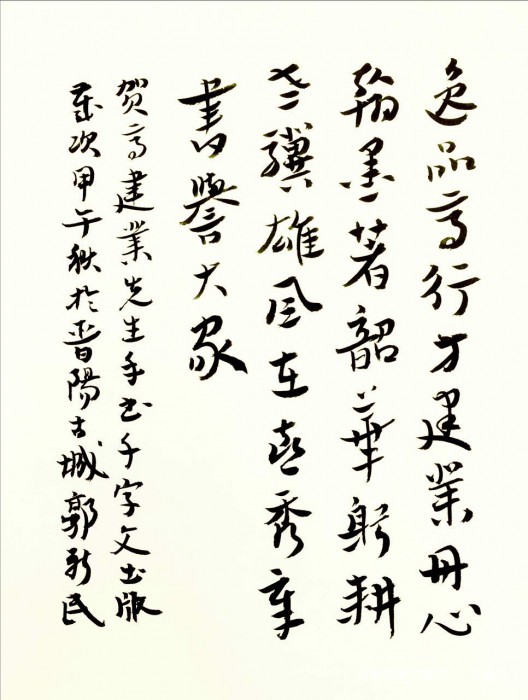 逸品高行方建業丹心
翰墨著韶華躬耕
老驥雄風在喜秀章
書譽大家
贺高建業先生手书千字文出版
歲次甲午秋於晉陽古城郭新民